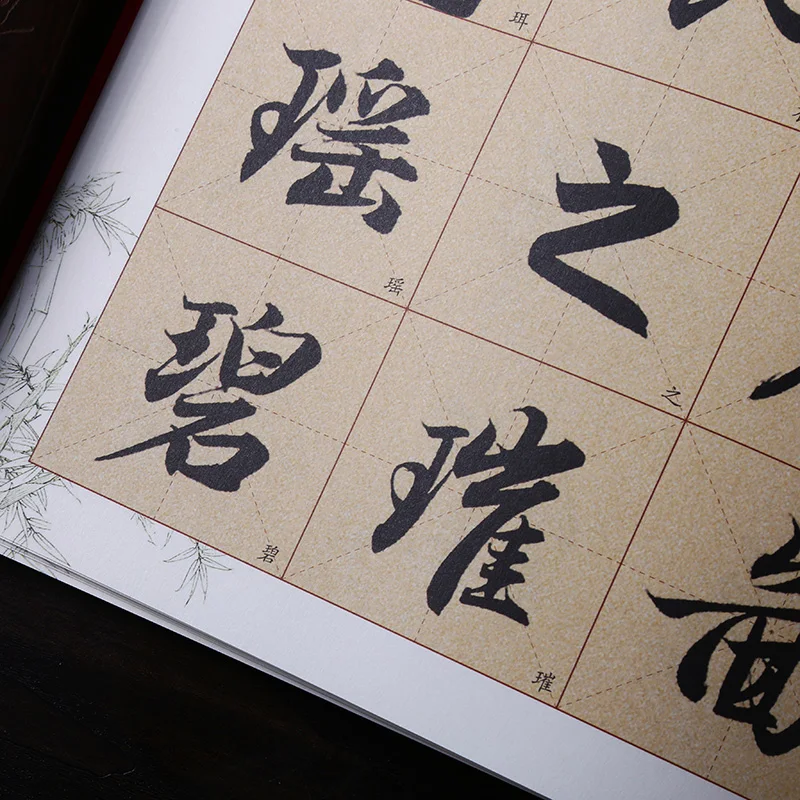 之
之
璀
璀
珥
瑶
瑶
碧
碧